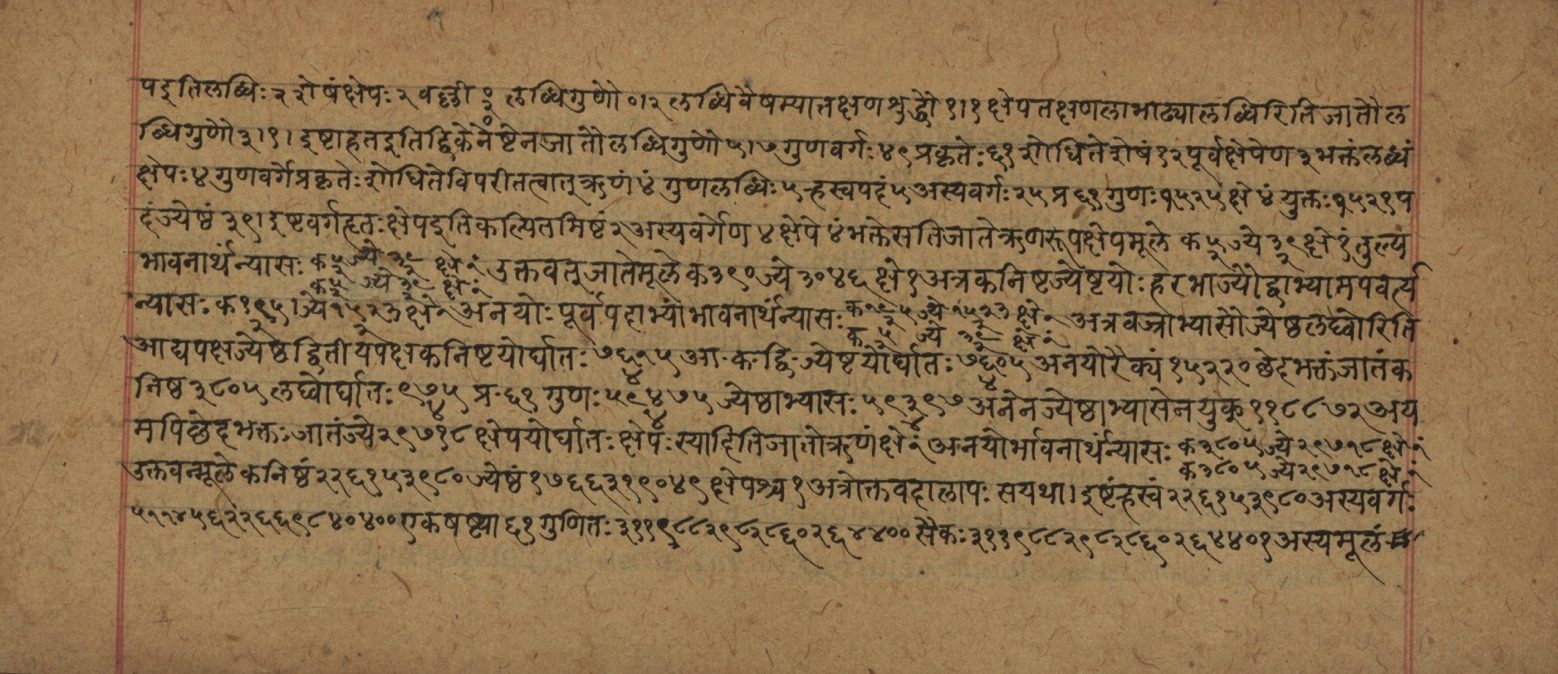 पद्रतिलब्धिः २ शेषं क्षेपः २ वल्ली लब्धिगुणौ ०।२ लब्धिवैषम्यातक्षणशुद्धौ १।१ क्षेपतक्षणलाभाढ्यालब्धिरितिजातौल
ब्धिगुणौ ३।१। इष्टाहतइतिद्विकेनेष्टेनजातौलब्धिगुणौ ५।७ गुणवर्गः ४९ प्रकृतेः ६१ शोधितेशेषं १२ पूर्वक्षेपेण ३ भक्तंलब्धं
क्षेपः ४ गुणवर्गेप्रकृतेः शोधितेविपरीतत्वात्ऋणं ४ं गुणलब्धिः ५ ह्रस्वपदं ५ अस्यवर्गः २५ प्र ६१ गुणः १५२५ क्षे ४ं युक्तः १५२१ प
दंज्येष्ठं ३९। इष्टवर्गहृतः क्षेपइतिकल्पितमिष्टं २ अस्यवर्गेण ४ क्षेपे ४ं भक्तेसतिजातेऋणरूपक्षेपमूले क ५/२ ज्ये ३९/२ क्षे १ं तुल्य
भावनार्थंन्यासः क ५/२ ज्ये ३९/२ क्षे १ं क ५/२ ज्ये ३९/२ क्षे १ं उक्तवत्जातेमूले क ३९० ज्ये ३०४६ क्षे १ अत्रकनिष्टज्येष्टयोः हरभाज्यौद्वाभ्यामपवर्त्य
न्यासः क १९५/२ । ज्ये १५२३/२ क्षे १ अनयोः पूर्वपदाभ्यांभावनार्थंन्यासः क १९५/२ ज्ये १५२३/२ क्षे १ क ५/२ ज्ये ३९/२ क्षे १ं अत्रवज्राभ्यासौज्येष्ठलघ्वोरिति
आद्यपक्षज्येष्ठद्वितीयपक्षकनिष्टयोर्घातः ७६१५/४ आ-क-द्वि-ज्येष्टयोर्घातः ७६०५/४ अनयोरैक्यं १५२२० छेदभक्तंजातंक
निष्ठ ३८०५ लघ्वोर्घातः ९७५/४ प्र-६१ गुणः ५९४७५/४ ज्येष्ठाभ्यासः ५९३९७/४ अनेनज्येष्ठाभ्यासेनयुक् ११८८७२ अय
मपिछेदभक्तः जातंज्ये २९७१८ क्षेपयोर्घातः क्षेपः स्यादितिजातोऋणंक्षे १ं अनयोर्भावनार्थंन्यासः क ३८०५ ज्ये २९७१८ क्षे १ं क ३८०५ ज्ये २९७१८ क्षे १ं
उक्तवन्मूलेकनिष्ठं २२६१५३९८० ज्येष्ठं १७६६३१९०४९ क्षेपश्च १ अत्रोक्तवदालापः सयथा। इष्टंह्रस्वं २२६१५३९८० अस्यवर्गः
५११४५६२२६६९८४०४०० एकषष्ट्या ६१ गुणितः ३११९८८२९८२८६०२६४४०० सैकः ३११९८८२९८२८६०२६४४०१ अस्यमूलं